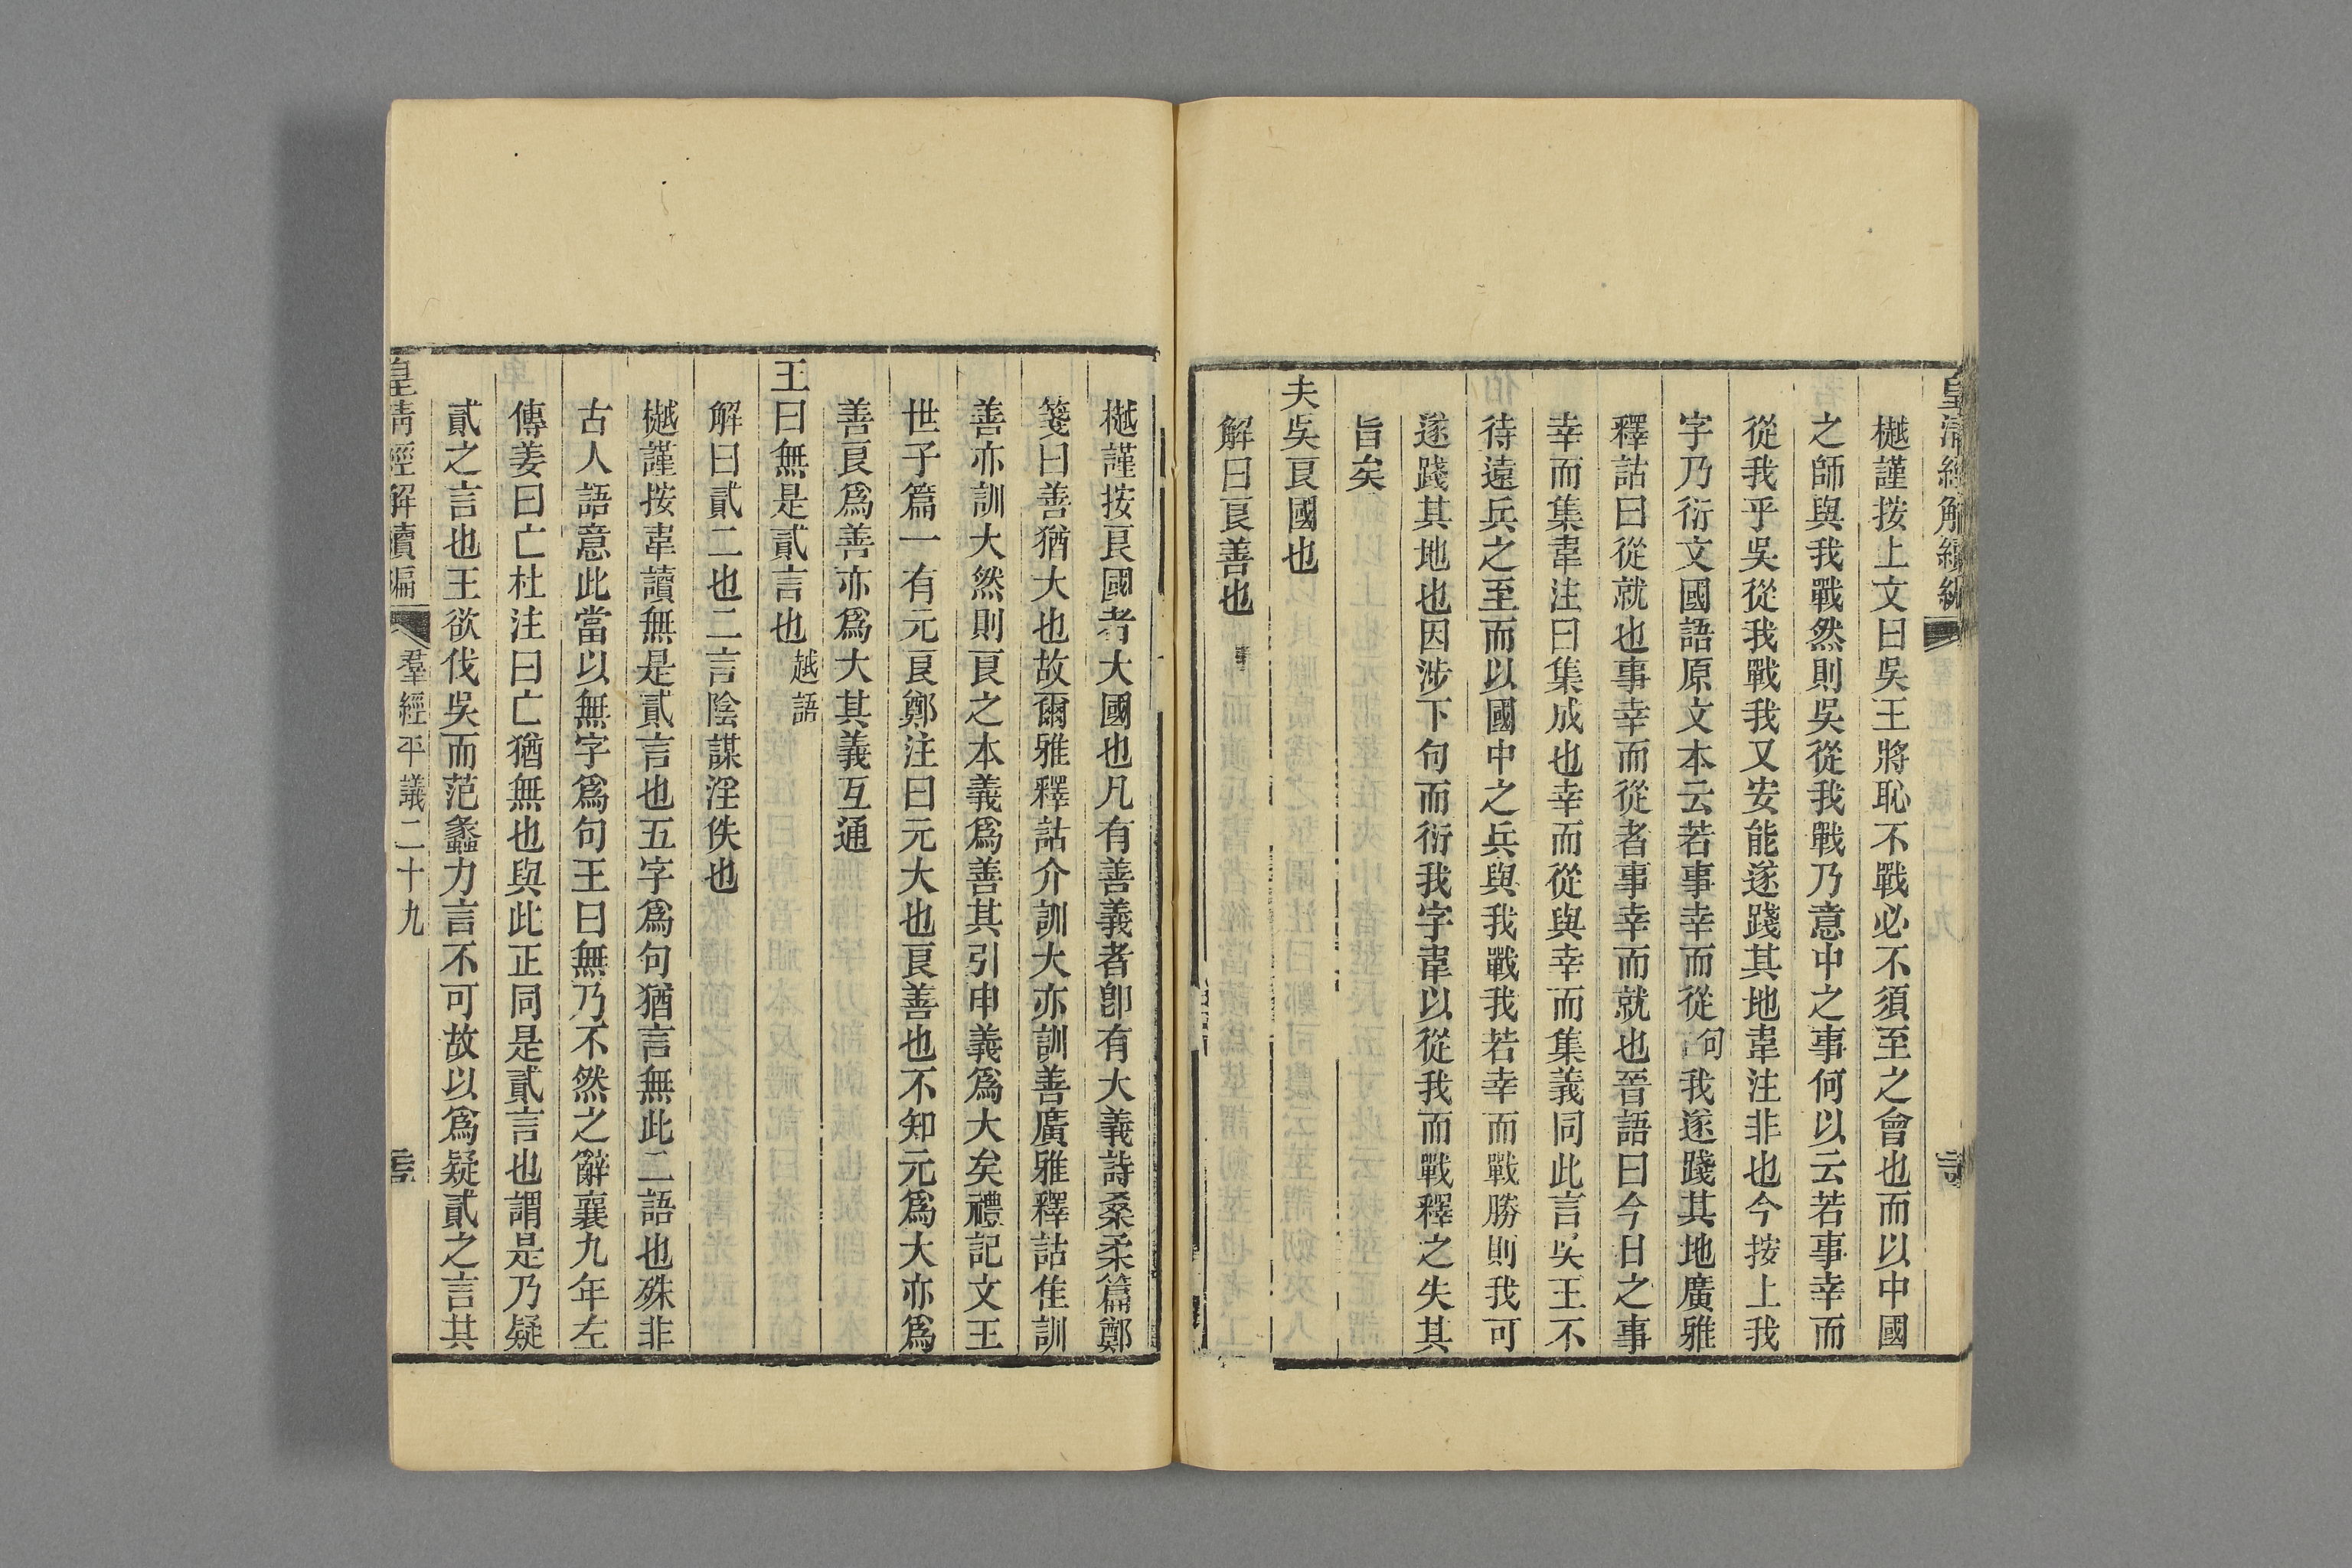 皇清經解續編
樾謹按上文曰吳王將恥不戰必不須至之會也而以中國
之師與我戰然則吳從我戰乃意中之事何以云若事幸而
從我乎吳從我戰我又安能遂踐其地韋注非也今按上我
字乃衍文國語原文本云若事幸而從句我遂踐其地廣雅
釋詁曰從就也事幸而從者事幸而就也晉語曰今日之事
幸而集韋注曰集成也幸而從與幸而集義同此言吳王不
待遠兵之至而以國中之兵與我戰我若幸而戰勝則我可
遂踐其地也因涉下句而衍我字韋以從我而戰釋之失其
旨矣
夫吳良國也
解曰良善也
樾謹按良國者大國也凡有善義者卽有大義詩桑柔篇鄭
箋曰善猶大也故爾雅釋詁介訓大亦訓善廣雅釋詁佳訓
善亦訓大然則良之本義爲善其引申義爲大矣禮記文王
世子篇一有元良鄭注曰元大也良善也不知元爲大亦爲
善良爲善亦爲大其義互通
王曰無是貳言也越語
解曰貳二也二言陰謀淫佚也
樾謹按韋讀無是貳言也五字爲句猶言無此二語也殊非
古人語意此當以無字爲句王曰無乃不然之辭襄九年左
傳姜曰亡杜注曰亡猶無也與此正同是貳言也謂是乃疑
貳之言也王欲伐吳而范蠡力言不可故以爲疑貳之言其
皇清經解續編 羣經平議二十九